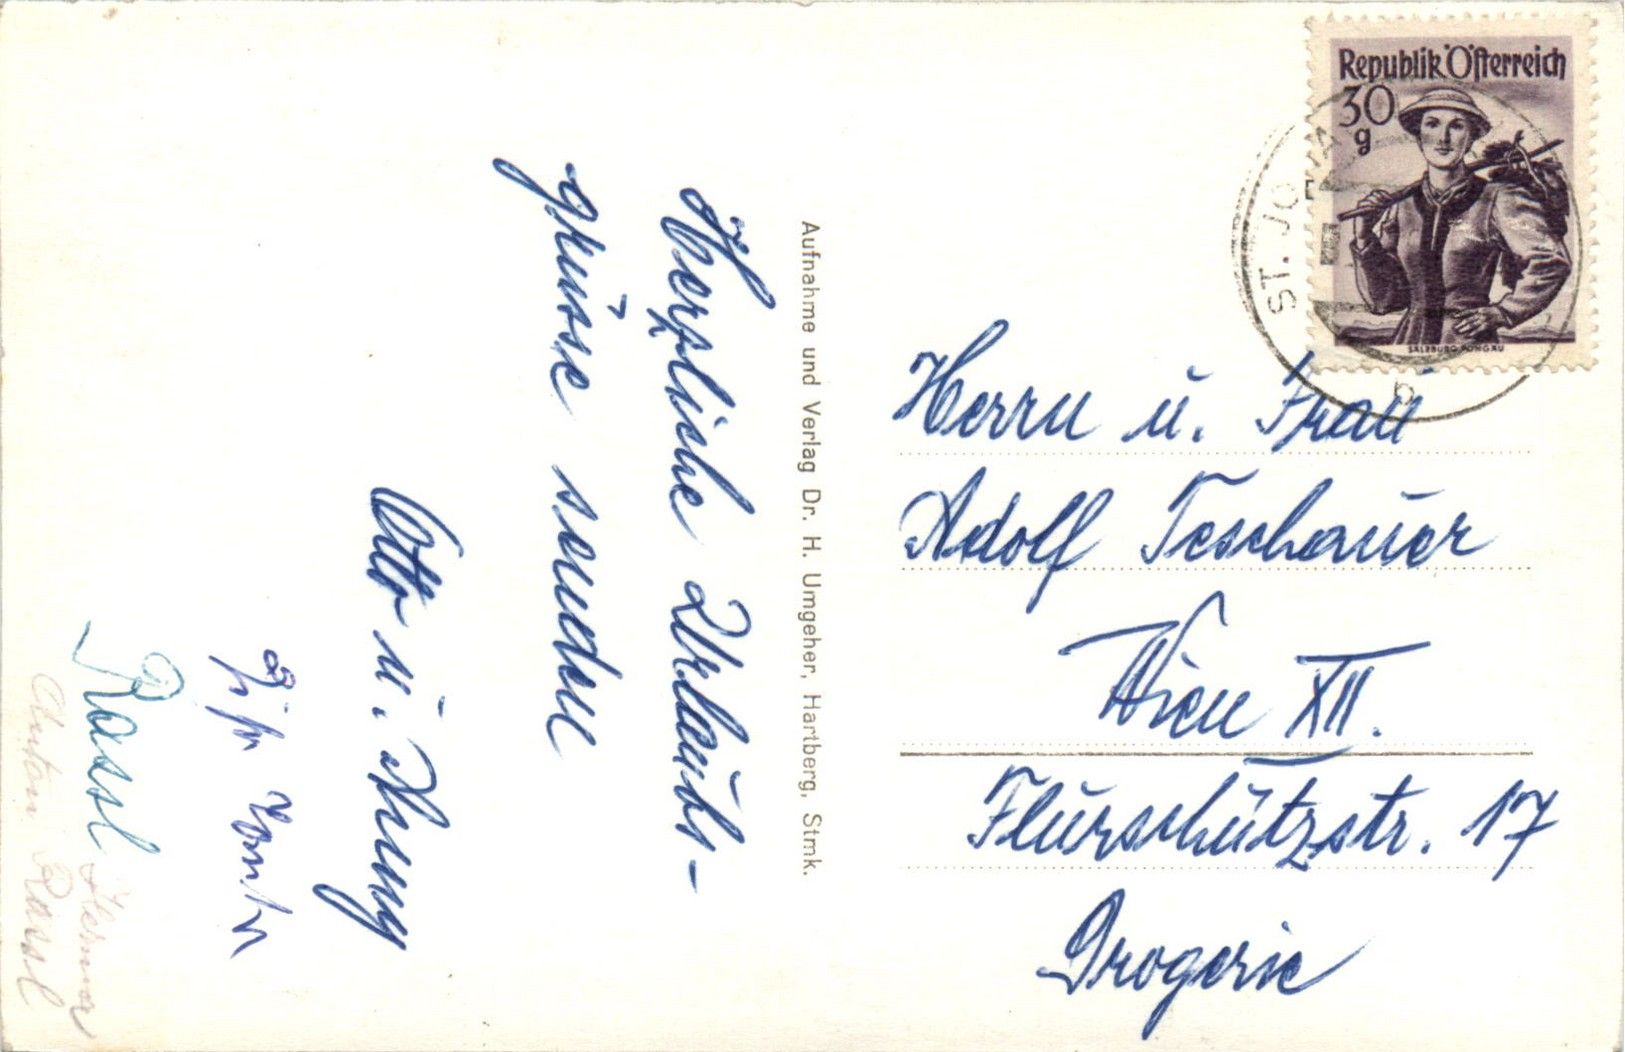 Herzliche Urlaubs-
grüsse senden
Otto u. Anny
Rossl
Anton Rossl
Aufnahme und Verlag Dr. H. Umgeher, Hartberg, Stmk.
Republik Österreich
30
g
SALZBURG, PONGAU
ST. JOHA
b
Herrn u. Frau
Adolf Teschauer
Wien XII.
Flurschützstr. 17
Drogerie